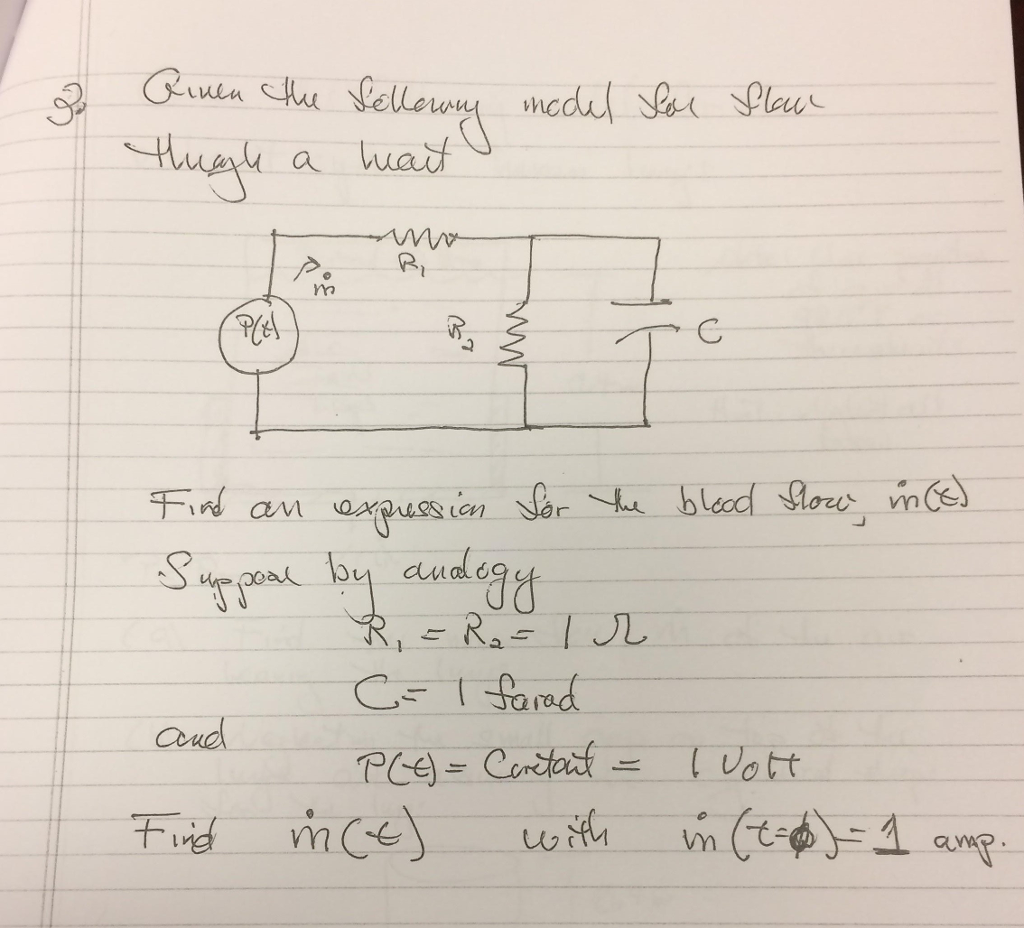 3. Given the following model for flow
through a heart
R₁
ṁ
P(t)
R₂
C
Find an expression for the blood flow, ṁ(t)
Suppose by analogy
R₁ = R₂ = 1 Ω
C = 1 farad
and
P(t) = Constant = 1 Volt
Find ṁ(t) with ṁ(t=0)=1 amp.